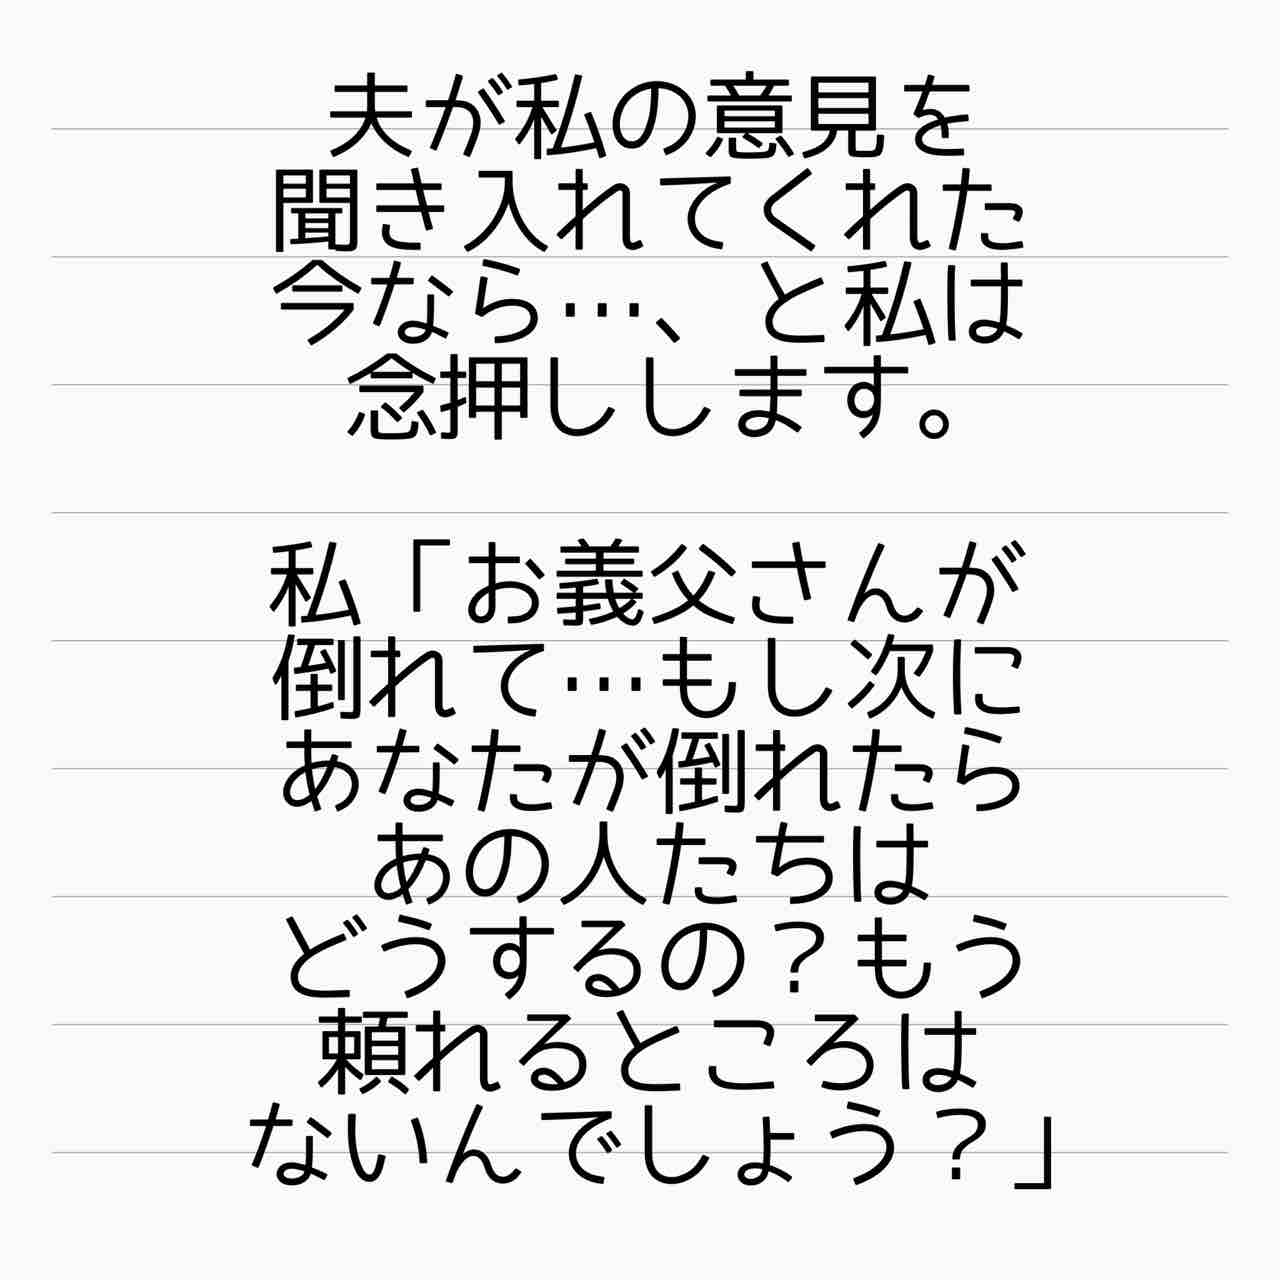 夫が私の意見を
聞き入れてくれた
今なら…、と私は
念押しします。
私「お義父さんが
倒れて…もし次に
あなたが倒れたら
あの人たちは
どうするの？もう
頼れるところは
ないんでしょう？」